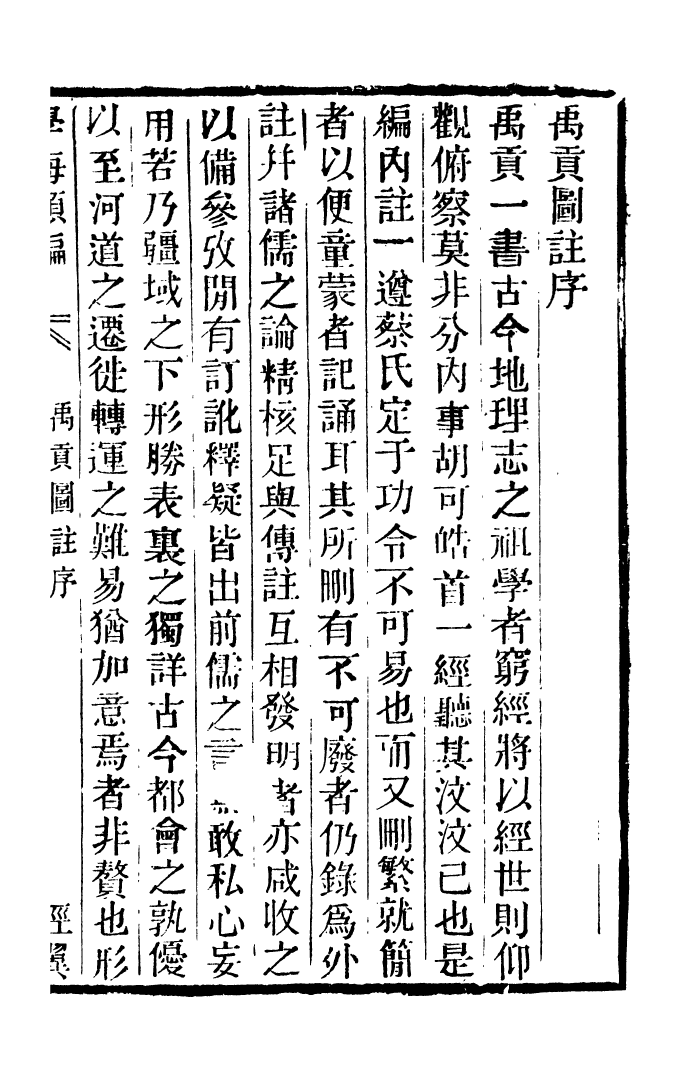 禹貢圖註序
禹貢一書古今地理志之祖學者窮經將以經世則仰
觀俯察莫非分內事胡可皓首一經聽其汶汶已也是
編內註一遵蔡氏定于功令不可易也而又刪繁就簡
者以便童蒙者記誦耳其所刪有不可廢者仍錄爲外
註幷諸儒之論精核足與傳註互相發明者亦咸收之
以備參攷閒有訂訛釋疑皆出前儒之言 敢私心妄
用若乃疆域之下形勝表裏之獨詳古今都會之孰優
以至河道之遷徙轉運之難易猶加意焉者非贅也形
學海類編 禹貢圖註序 經翼